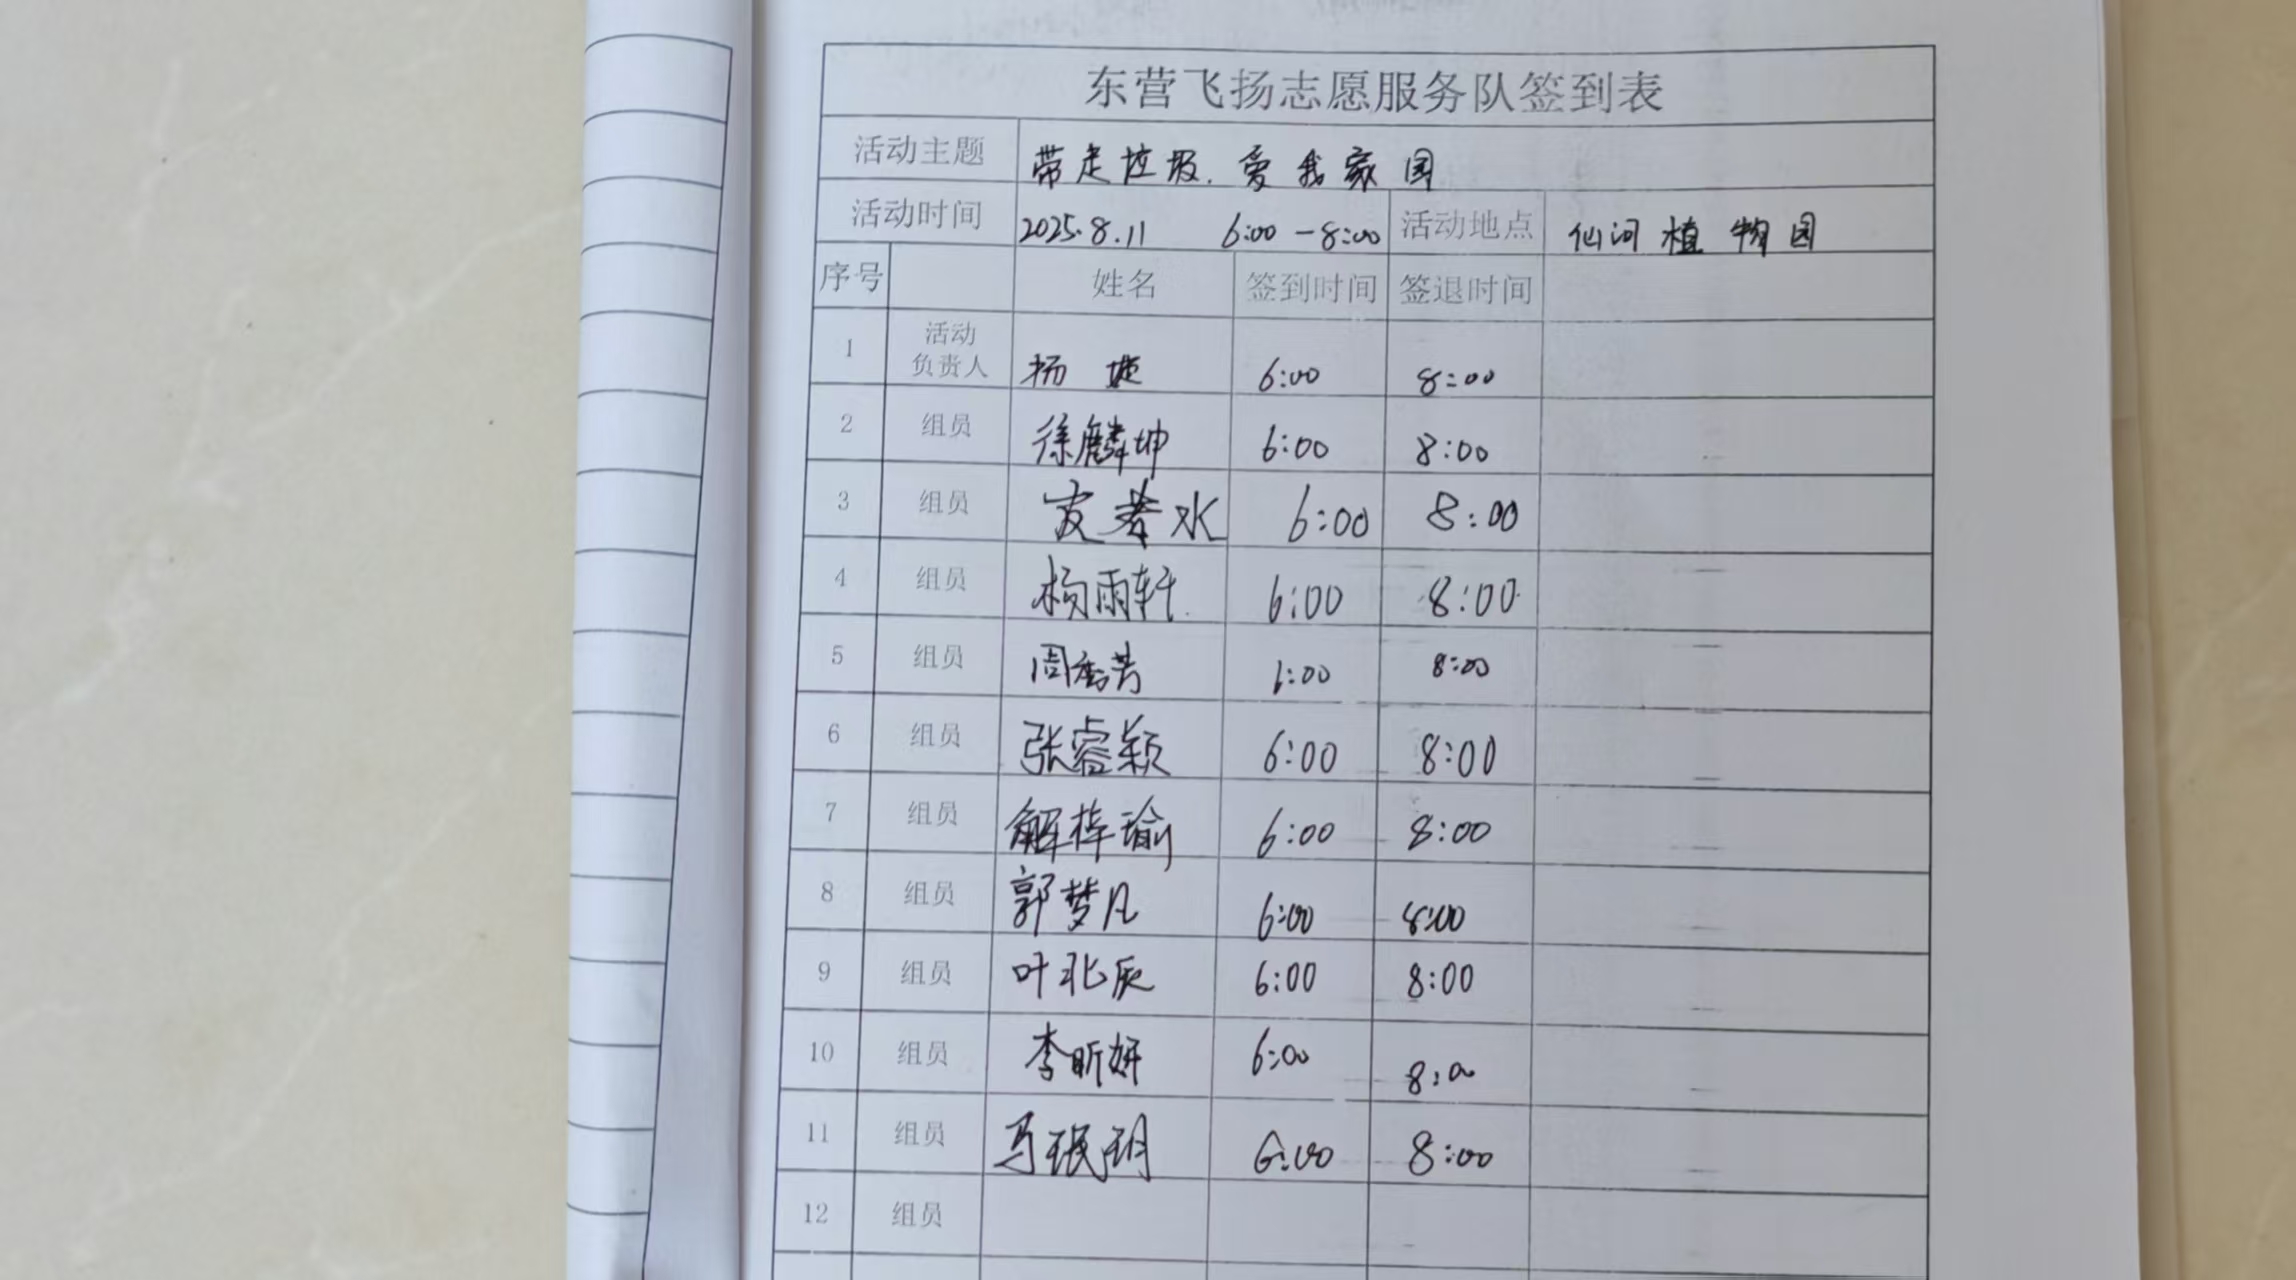 东营飞扬志愿服务队签到表
活动主题 带走垃圾.爱我家园
活动时间 2025.8.11 6:00-8:00 活动地点 仙河植物园
序号 姓名 签到时间 签退时间
1 活动负责人 杨 6:00 8:00
2 组员 徐麟坤 6:00 8:00
3 组员 水 6:00 8:00
4 组员 杨雨轩 6:00 8:00
5 组员 周秀芳 6:00 8:00
6 组员 张睿颖 6:00 8:00
7 组员 解梓瑜 6:00 8:00
8 组员 郭梦凡 6:00 8:00
9 组员 叶北辰 6:00 8:00
10 组员 李昕妍 6:00 8:00
11 组员 马珉玥 6:00 8:00
12 组员